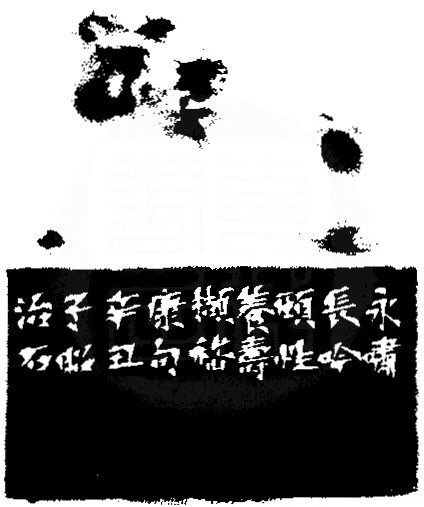 永嘯
長吟
頤性
養壽
擷嵇
康句
辛丑
子昭
治石